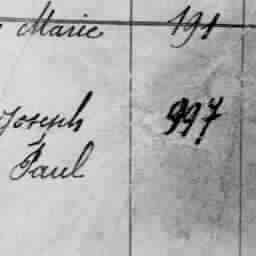 Marie 191
Joseph 997
Paul